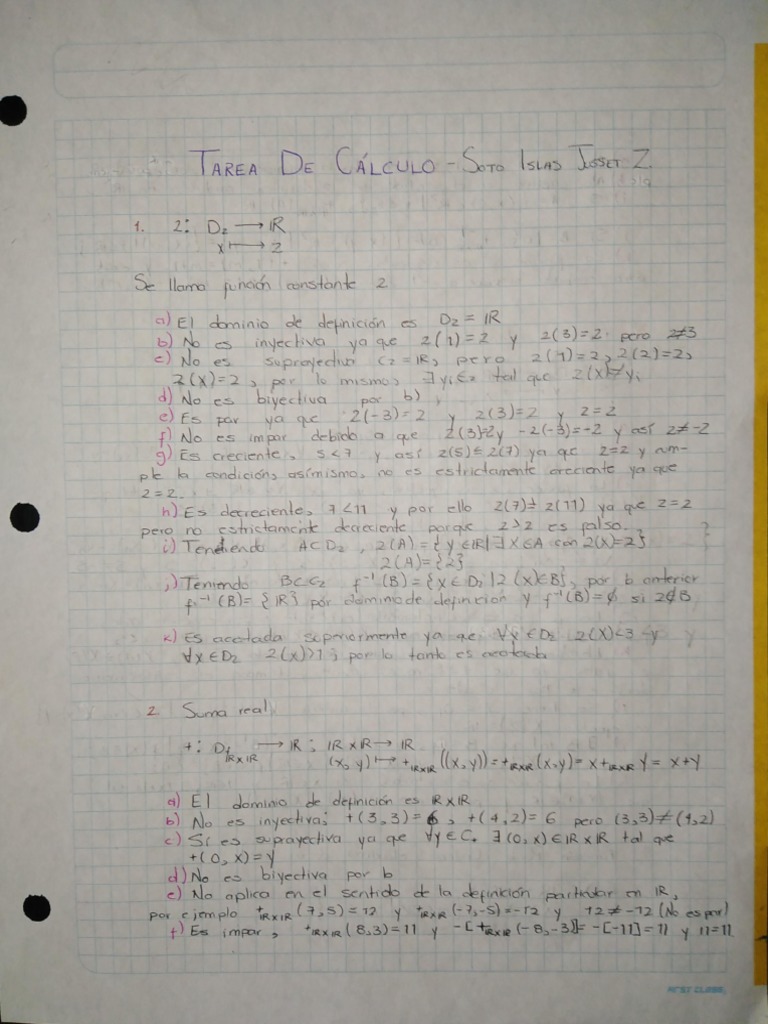 TAREA DE CÁLCULO - SOTO ISLAS JUSSET Z.
1. 2: D₂ → ℝ
x ↦ 2
Se llama función constante 2
a) El dominio de definición es D₂ = ℝ
b) No es inyectiva ya que 2(1)=2 y 2(3)=2 pero 2≠3
c) No es suprayectiva C₂=ℝ, pero 2(1)=2, 2(2)=2,
2(x)=2, por lo mismo, ∃ y, ∈ tal que 2(x)≠y,
d) No es biyectiva por b),
e) Es par ya que 2(-3)=2 y 2(3)=2 y 2=2
f) No es impar debido a que 2(3)=2 y -2(-3)=-2 y así 2≠-2
g) Es creciente, 5<7 y así 2(5)≤2(7) ya que 2=2 y cum-
ple la condición, asímismo, no es estrictamente creciente ya que
2=2.
h) Es decreciente, 7<11 y por ello 2(7)≥2(11) ya que 2=2
pero no estrictamente decreciente porque 2>2 es falso.
i) Teniendo A⊂D₂, 2(A)={y∈ℝ|∃x∈A con 2(x)=2}
2(A)={2}
j) Teniendo B⊂C₂ f⁻¹(B)={x∈D₂|2(x)∈B}, por b anterior
f⁻¹(B)={ℝ} por dominio de definición y f⁻¹(B)=∅ si 2∉B
k) Es acotada superiormente ya que ∀x∈D₂ 2(x)<3 y
∀x∈D₂ 2(x)>1; por lo tanto es acotada
2 Suma real
+: D₊ → ℝ; ℝxℝ → ℝ
ℝxℝ (x,y) ↦ +ℝxℝ((x,y))=+ℝxℝ(x,y)=x+ℝxℝ y=x+y
a) El dominio de definición es ℝxℝ
b) No es inyectiva; +(3,3)=6, +(4,2)=6 pero (3,3)≠(4,2)
c) Sí es suprayectiva ya que ∀y∈C₊ ∃(0,x)∈ℝxℝ tal que
+(0,x)=y
d) No es biyectiva por b
e) No aplica en el sentido de la definición particular en ℝ,
por ejemplo +ℝxℝ(7,5)=12 y +ℝxℝ(-7,-5)=-12 y 12≠-12 (No es par)
f) Es impar, +ℝxℝ(8,3)=11 y -[+ℝxℝ(-8,-3)]=-[-11]=11 y 11=11
FIRST CLASS